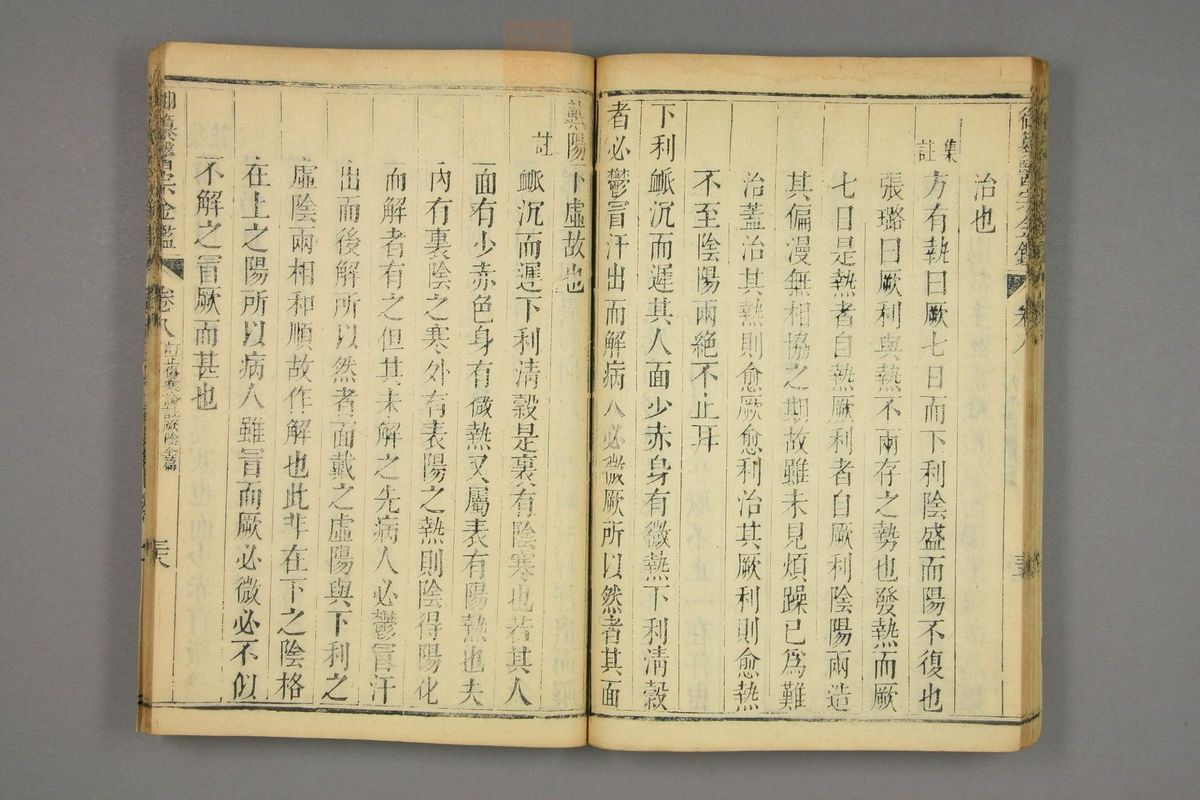 御纂醫宗金鑑 卷八
治也
集註
方有執曰厥七日而下利陰盛而陽不復也
張璐曰厥利與熱不兩存之勢也發熱而厥
七日是熱者自熱厥利者自厥利陰陽兩造
其偏漫無相協之期故雖未見煩躁已爲難
治蓋治其熱則愈厥愈利治其厥利則愈熱
不至陰陽兩絕不止耳
下利脈沉而遲其人面少赤身有微熱下利清穀
者必鬱冒汗出而解病人必微厥所以然者其面
戴陽下虛故也
註
脈沉而遲下利清穀是裏有陰寒也若其人
面有少赤色身有微熱又屬表有陽熱也夫
內有裏陰之寒外有表陽之熱則陰得陽化
而解者有之但其未解之先病人必鬱冒汗
出而後解所以然者面戴之虛陽與下利之
虛陰兩相和順故作解也此非在下之陰格
在上之陽所以病人雖冒而厥必微必不似
不解之冒厥而甚也
御纂醫宗金鑑 卷八 訂正傷寒論註厥陰全篇 三六